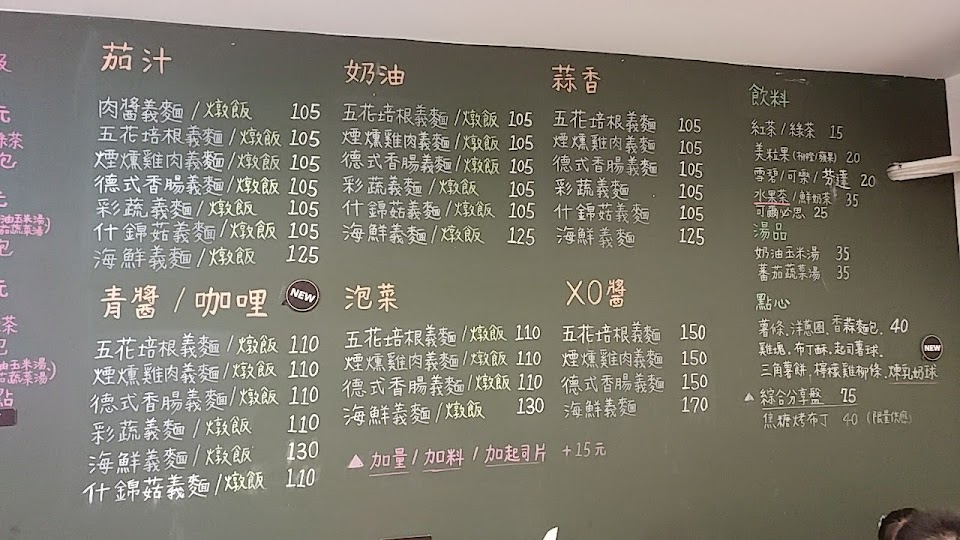 茄汁
肉醬義麵/燉飯 105
五花培根義麵/燉飯 105
煙燻雞肉義麵/燉飯 105
德式香腸義麵/燉飯 105
彩蔬義麵/燉飯 105
什錦菇義麵/燉飯 105
海鮮義麵/燉飯 125
青醬/咖哩 NEW
五花培根義麵/燉飯 110
煙燻雞肉義麵/燉飯 110
德式香腸義麵/燉飯 110
彩蔬義麵/燉飯 110
海鮮義麵/燉飯 130
什錦菇義麵/燉飯 110
奶油
五花培根義麵/燉飯 105
煙燻雞肉義麵/燉飯 105
德式香腸義麵/燉飯 105
彩蔬義麵/燉飯 105
什錦菇義麵/燉飯 105
海鮮義麵/燉飯 125
泡菜
五花培根義麵/燉飯 110
煙燻雞肉義麵/燉飯 110
德式香腸義麵/燉飯 110
海鮮義麵/燉飯 130
蒜香
五花培根義麵 105
煙燻雞肉義麵 105
德式香腸義麵 105
彩蔬義麵 105
什錦菇義麵 105
海鮮義麵 125
XO醬
五花培根義麵 150
煙燻雞肉義麵 150
德式香腸義麵 150
海鮮義麵 170
▲加量/加料/加起司片 +15元
飲料
紅茶/綠茶 15
美粒果(柳橙/蘋果) 20
雪碧/可樂/芬達 20
水果茶/鮮奶茶 35
可爾必思 25
湯品
奶油玉米湯 35
蕃茄蔬菜湯 35
點心
薯條.洋蔥圈.香蒜麵包. 40
雞塊.布丁酥.起司薯球. NEW
三角薯餅.檸檬雞柳條.煉乳奶球
▲綜合分享盤 75
焦糖烤布丁 40 (限量供應)